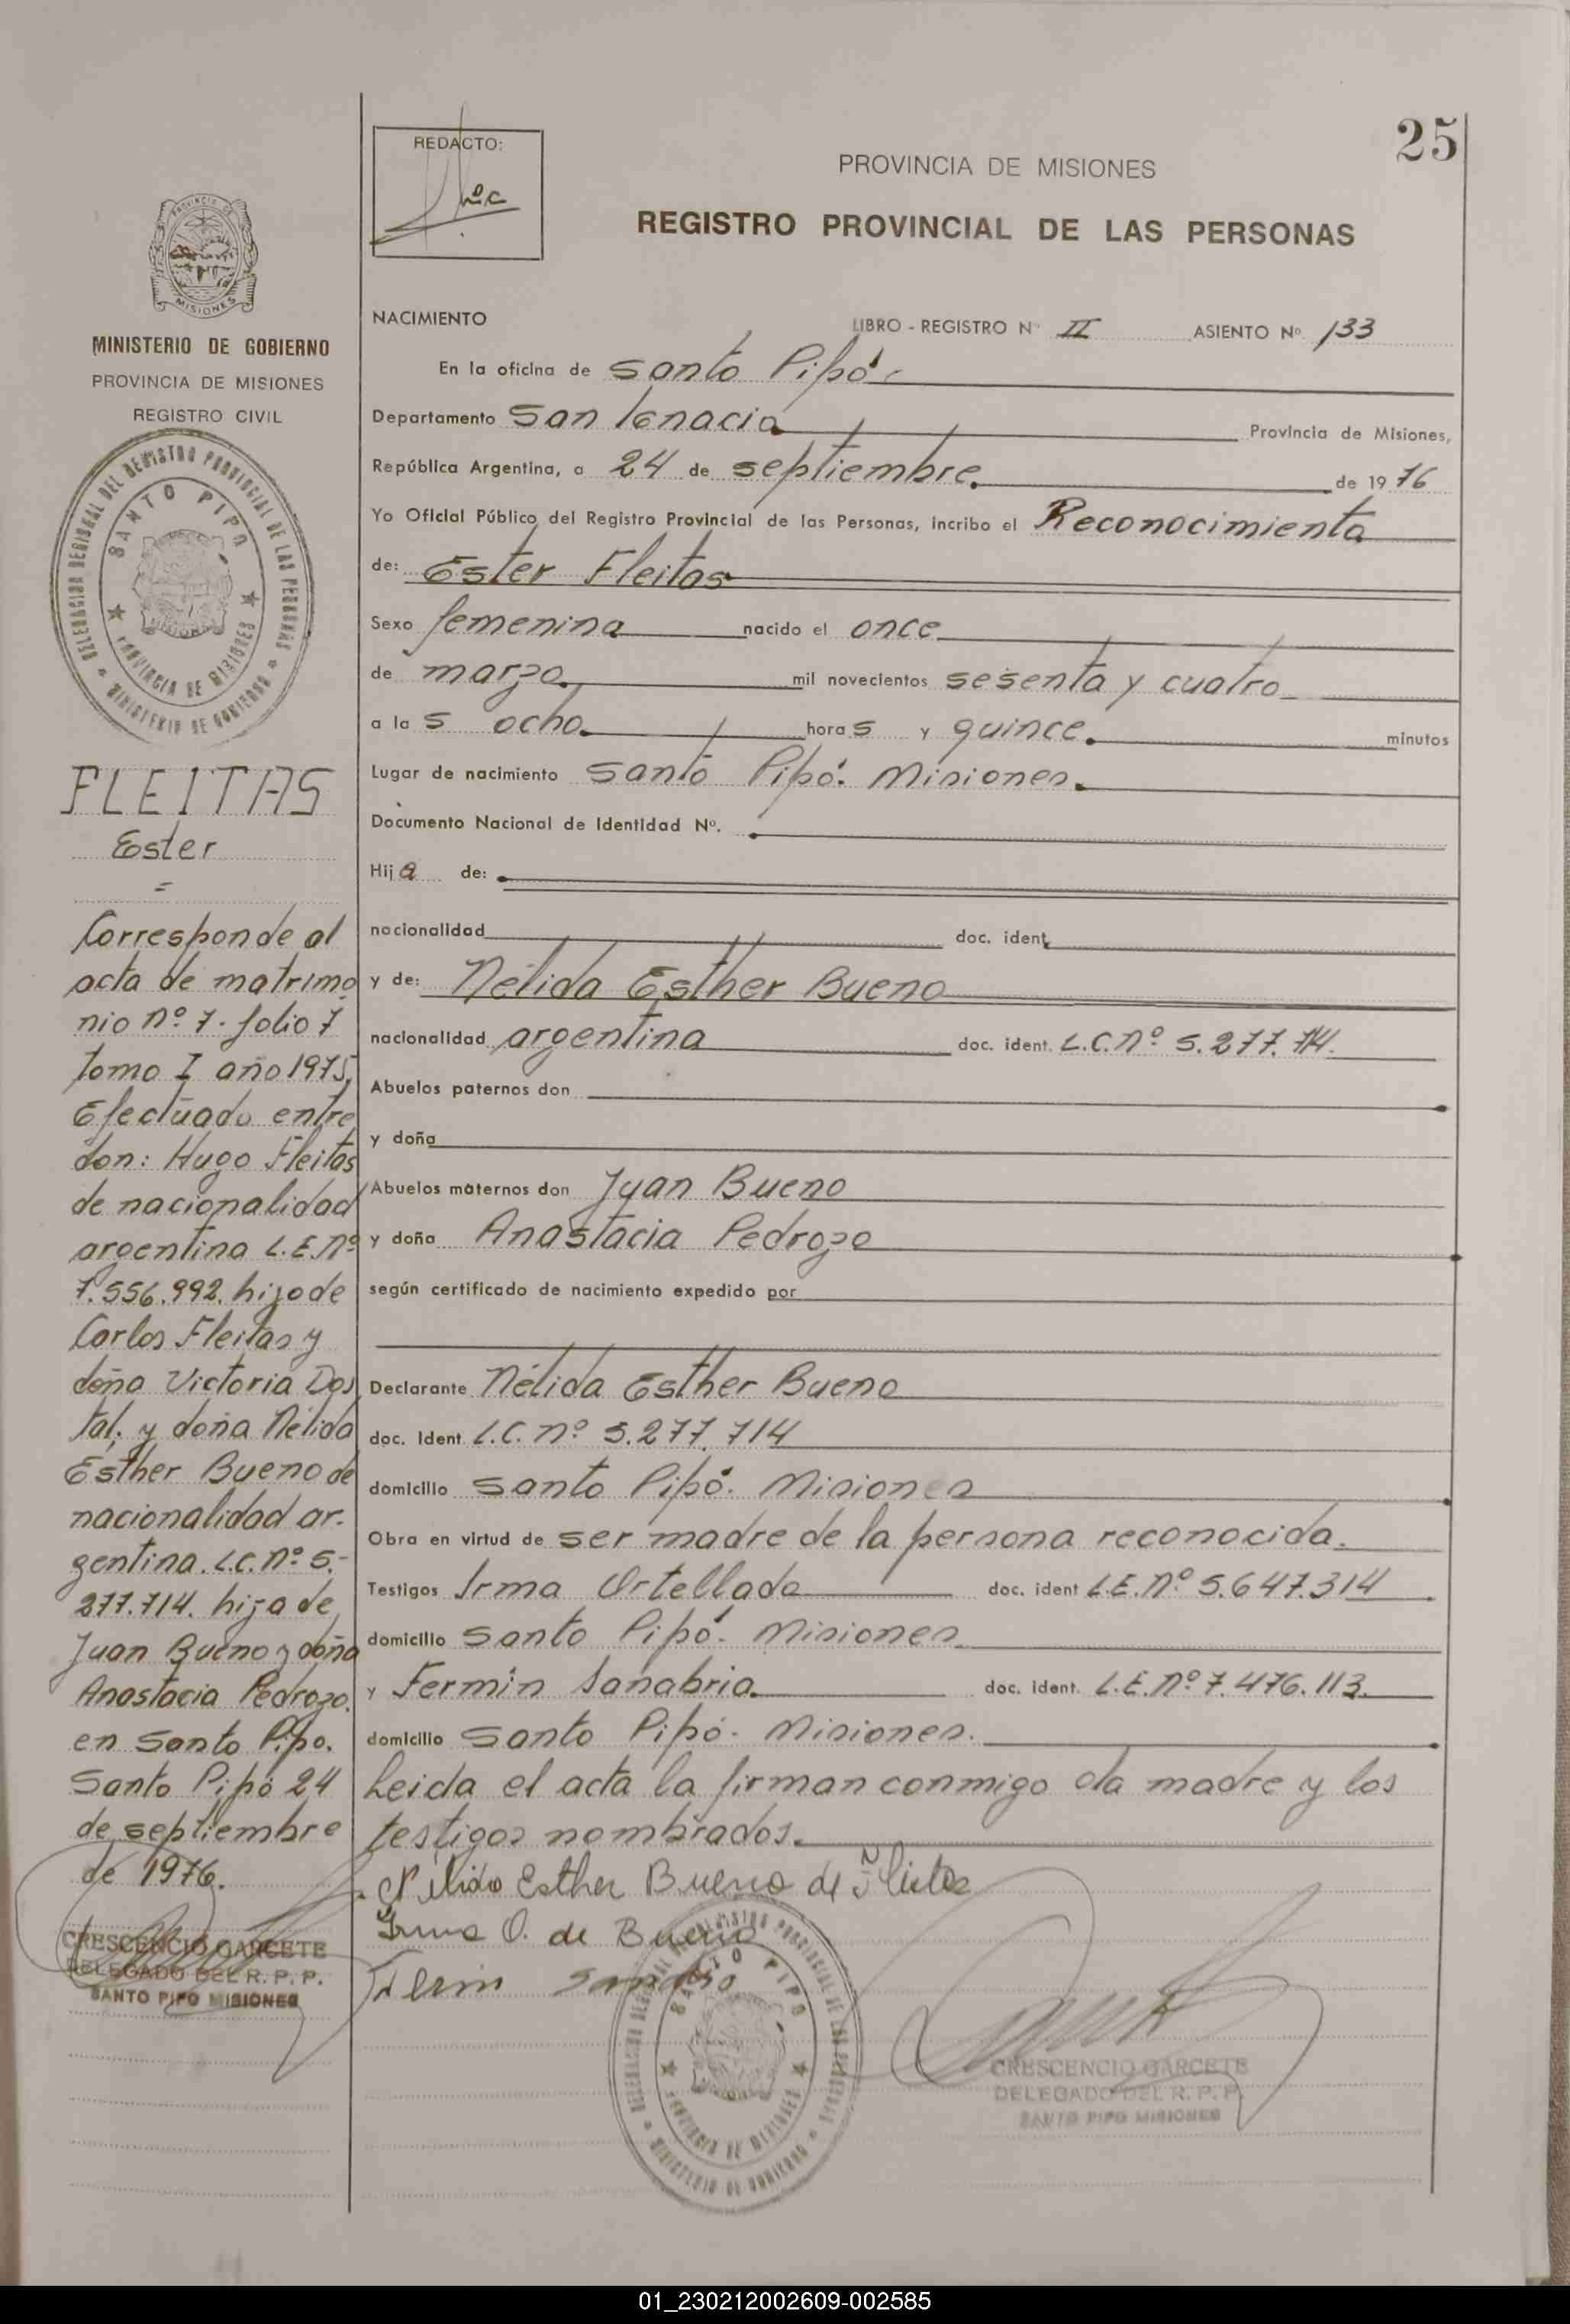 25
REDACTO:
PROVINCIA DE MISIONES
REGISTRO PROVINCIAL DE LAS PERSONAS
PROVINCIA DE MISIONES
MINISTERIO DE GOBIERNO
PROVINCIA DE MISIONES
REGISTRO CIVIL
DELEGACION REGISTRO PROVINCIAL DE LAS PERSONAS
SANTO PIPO
MISIONES
PROVINCIA DE MISIONES
MINISTERIO DE GOBIERNO
FLEITAS
Ester
=
Corresponde al
acta de matrimo
nio nº 7. folio 7
tomo I año 1975,
Efectuado entre
don: Hugo Fleitas
de nacionalidad
argentina L.E.Nº
7.556.992. hijo de
Carlos Fleitas y
doña Victoria Dos
tal; y doña Nélida
Esther Bueno de
nacionalidad ar-
gentina. L.C.nº 5.-
277.714. hija de
Juan Bueno y doña
Anastacia Pedrozo.
en Santo Pipo.
Santo Pipó 24
de septiembre
de 1976.
CRESCENCIO GARCETE
DELEGADO DEL R. P. P.
SANTO PIPO MISIONES
NACIMIENTO LIBRO - REGISTRO Nº II ASIENTO Nº 133
En la oficina de Santo Pipó.
Departamento San Ignacio Provincia de Misiones,
República Argentina, a 24 de septiembre. de 1976
Yo Oficial Público del Registro Provincial de las Personas, incribo el Reconocimiento
de: Ester Fleitas
Sexo femenina nacido el once
de marzo. mil novecientos sesenta y cuatro
a las ocho. horas y quince. minutos
Lugar de nacimiento Santo Pipó. Misiones.
Documento Nacional de Identidad Nº.
Hija de:
nacionalidad doc. ident.
y de: Nélida Esther Bueno
nacionalidad argentina doc. ident. L.C.nº 5.277.714.
Abuelos paternos don
y doña
Abuelos maternos don Juan Bueno
y doña Anastacia Pedrozo
según certificado de nacimiento expedido por
Declarante Nélida Esther Bueno
doc. Ident L.C. nº 5.277.714
domicilio Santo Pipó. Misiones
Obra en virtud de ser madre de la persona reconocida.
Testigos Irma Ortellado doc. ident L.E.nº 5.647.314
domicilio Santo Pipó. Misiones.
y Fermín Sanabria. doc. ident. L.E.nº 7.476.113.
domicilio Santo Pipó. Misiones.
Leida el acta la firman conmigo la madre y los
testigos nombrados.
Nélida Esther Bueno de Fleitas
Irma O. de Bueno
Fermin
DELEGACION REGISTRO PROVINCIAL DE LAS PERSONAS
SANTO PIPO
PROVINCIA DE MISIONES
MINISTERIO DE GOBIERNO
CRESCENCIO GARCETE
DELEGADO DEL R. P. P.
SANTO PIPO MISIONES
01_230212002609-002585